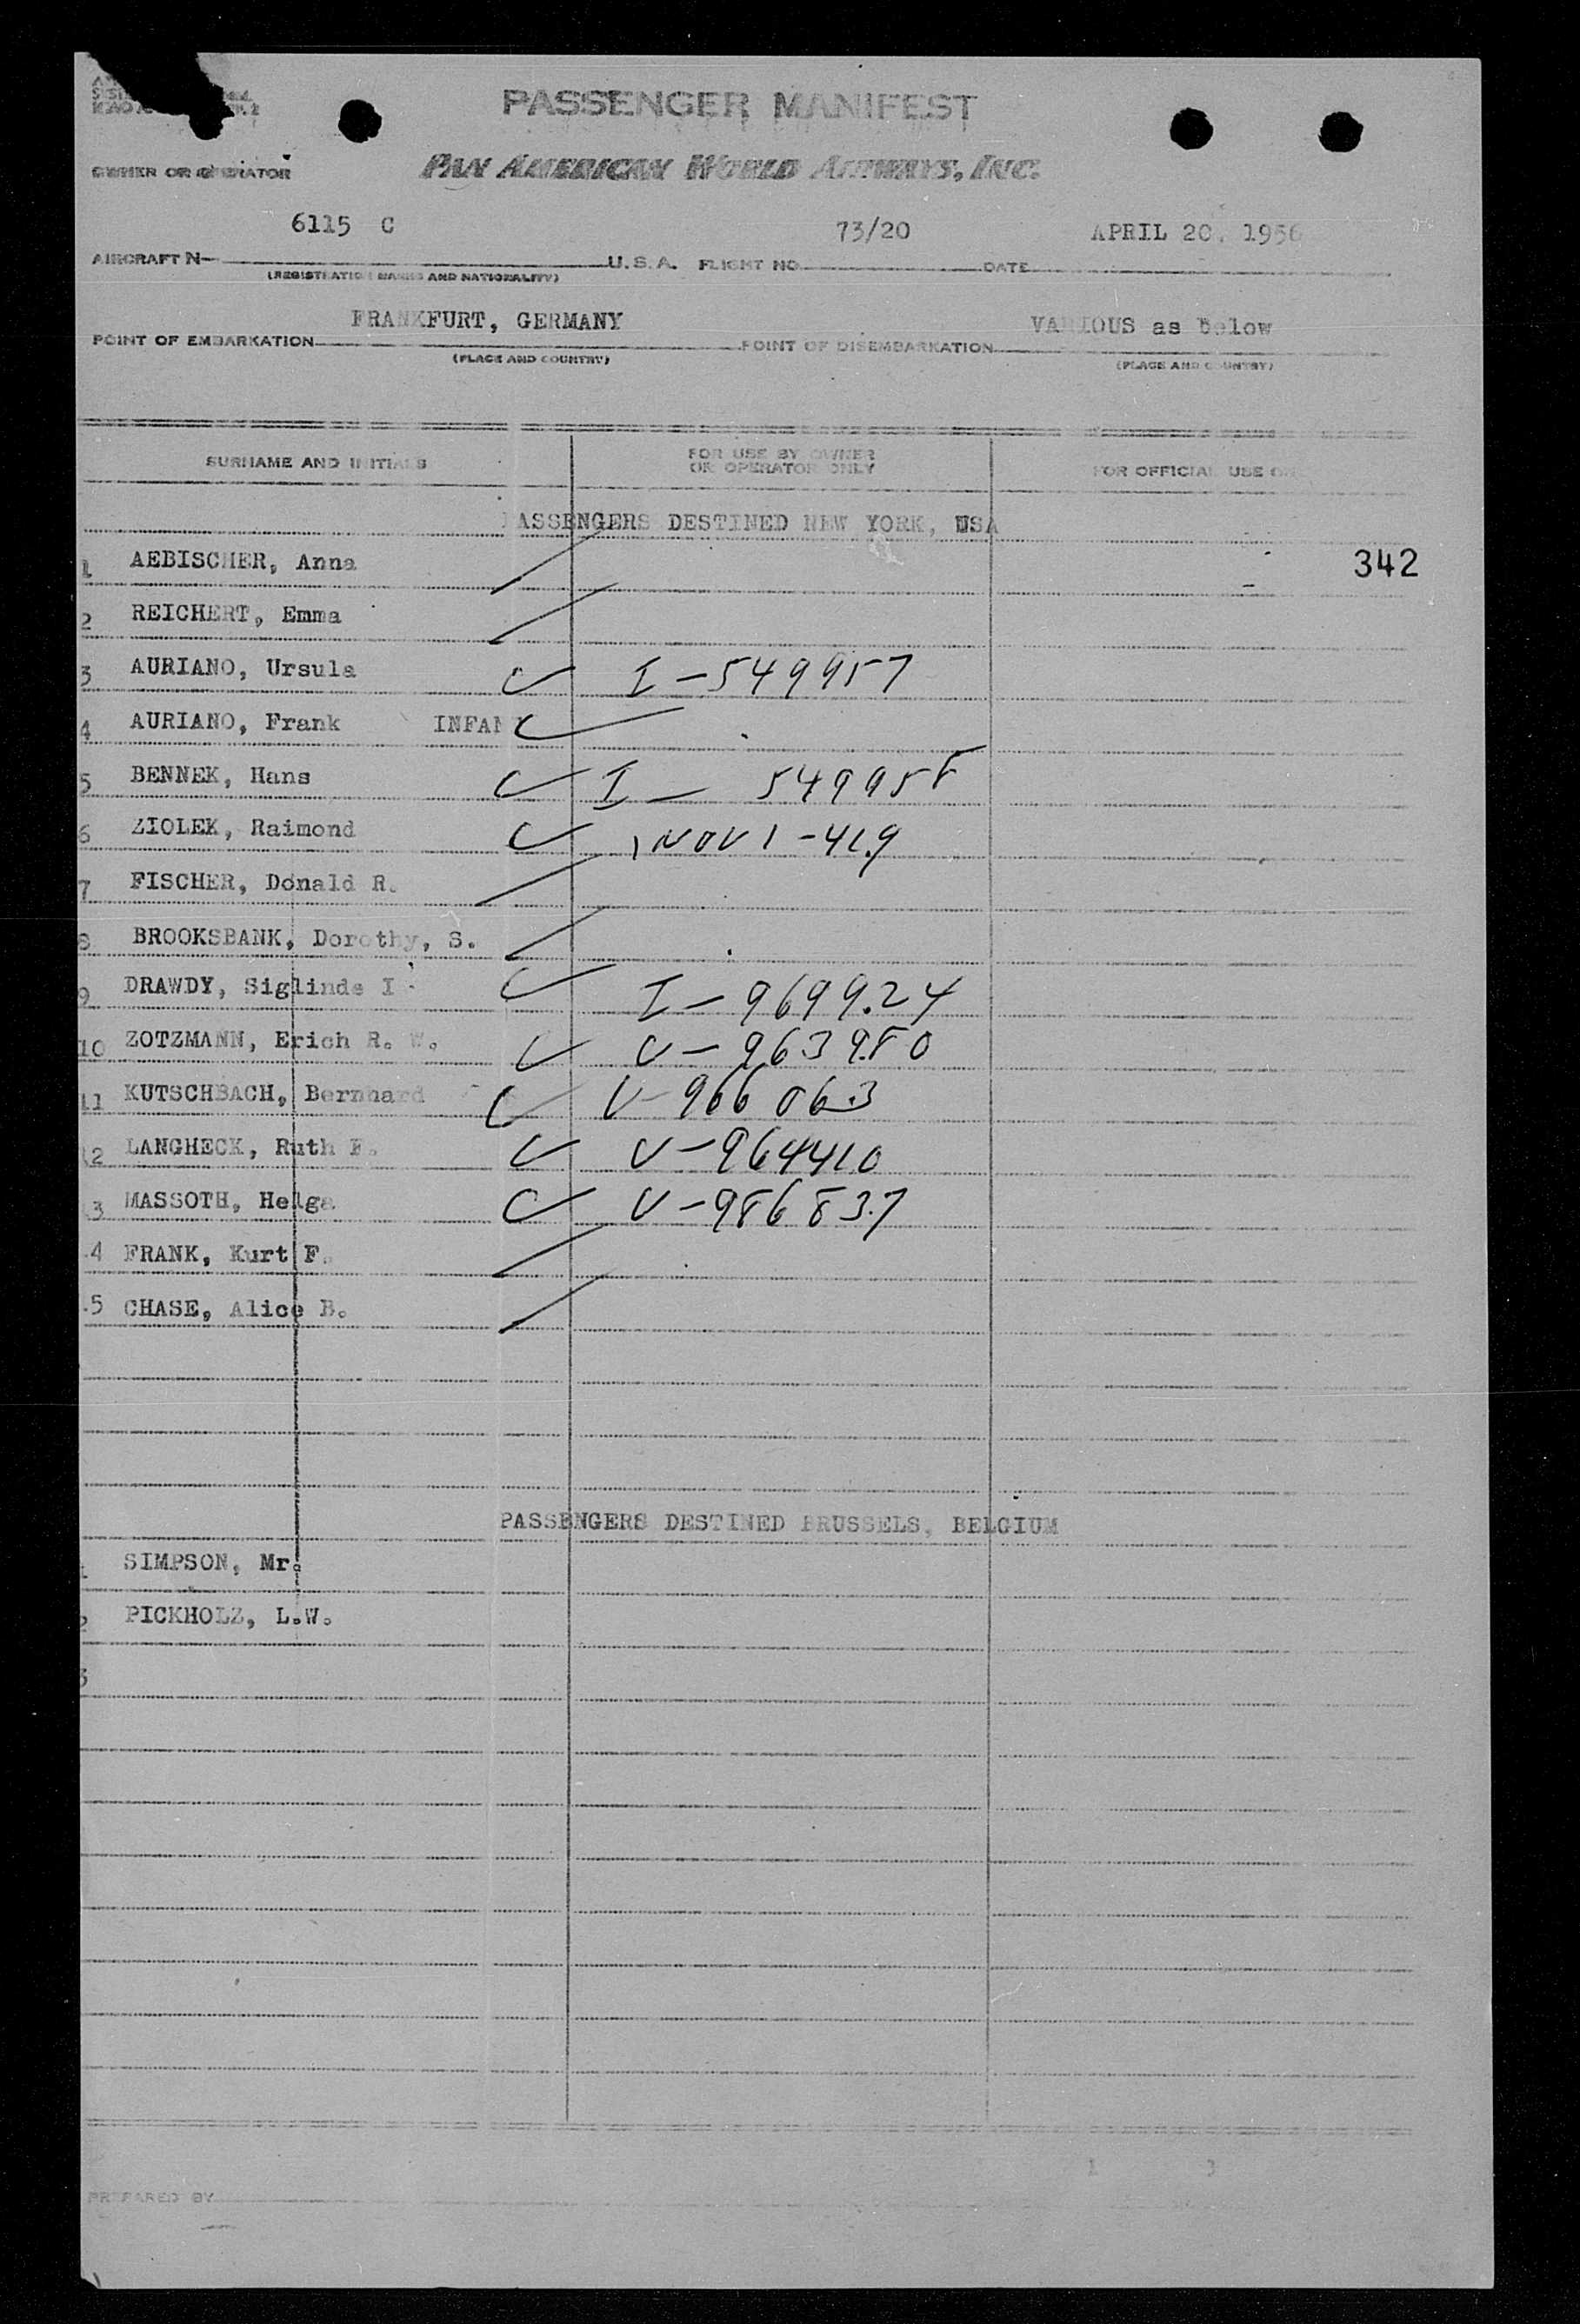 PASSENGER MANIFEST
OWNER OR OPERATOR PAN AMERICAN WORLD AIRWAYS, INC.
6115 C 73/20 APRIL 20, 1956
AIRCRAFT N- U.S.A. FLIGHT NO. DATE
(REGISTRATION MARKS AND NATIONALITY)
FRANKFURT, GERMANY VARIOUS as below
POINT OF EMBARKATION POINT OF DISEMBARKATION
(PLACE AND COUNTRY) (PLACE AND COUNTRY)
SURNAME AND INITIALS FOR USE BY OWNER OR OPERATOR ONLY FOR OFFICIAL USE
PASSENGERS DESTINED NEW YORK, USA
1 AEBISCHER, Anna 342
2 REICHERT, Emma
3 AURIANO, Ursula I-549957
4 AURIANO, Frank INFAN
5 BENNEK, Hans I- 549958
6 ZIOLEK, Raimond
7 FISCHER, Donald R.
8 BROOKSBANK, Dorothy, S.
9 DRAWDY, Siglinde I I-969924
10 ZOTZMANN, Erich R. W. V-963980
11 KUTSCHBACH, Bernhard V-966063
12 LANGHECK, Ruth V-964410
3 MASSOTH, Helga V-986837
4 FRANK, Kurt F.
5 CHASE, Alice B.
PASSENGERS DESTINED BRUSSELS, BELGIUM
1 SIMPSON, Mr.
2 PICKHOLZ, L.W.
3
1 3
PREPARED BY